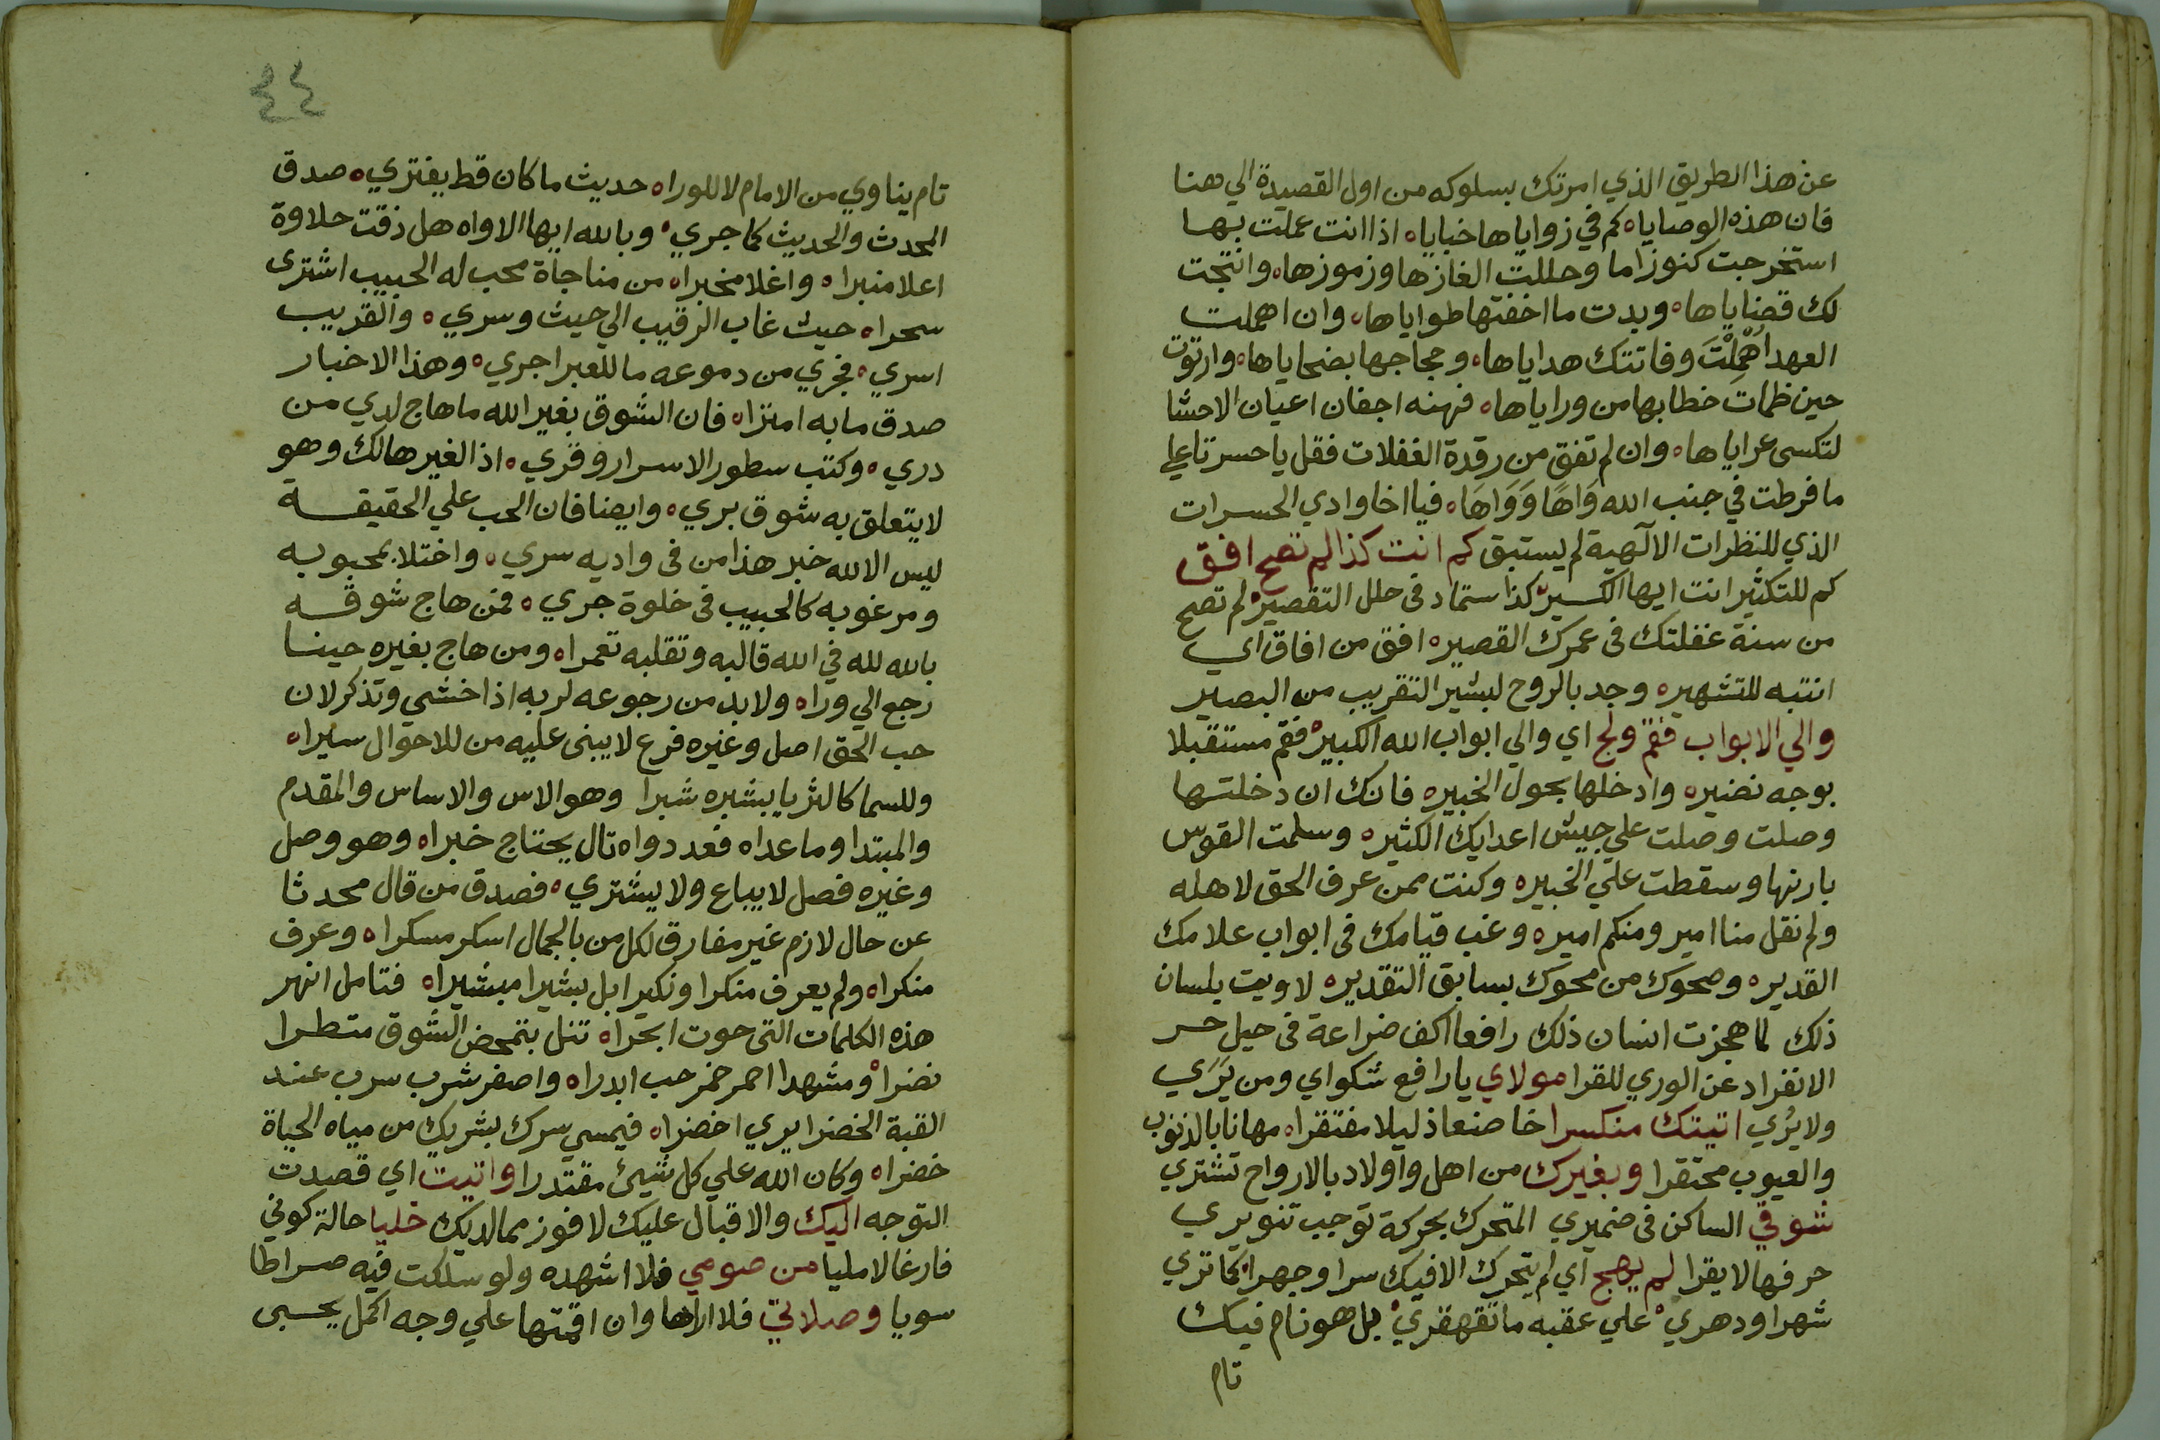 عن هذا الطريق الذي امرتك بسلوكه من اول القصيدة الي هنا
فان هذه الوصاياه كم في زواياها خباياه اذا انت عملت بها
استخرجت كنوزاما وحللت الغازها وزموزهاه وانتجت
لك قضاياهاه وبدت ما اخفتها طواياهاه وان اهملت
العهد اُهْمِلْتَ وفاتتك هداياهاه ومجاجها بضحاياهاه وارتوت
حين ظمات خطابها من وراياهاه فهنه اجفان اعيان الاحشا
لتكسى عراياهاه وان لم تفق من رقدة الغفلات فقل يا حسرتا علي
ما فرطت في جنب الله وَاهًا وَوَاهَاه فيا اخا وادي الحسرات
الذي للنظرات الالهية لم يستبق كم انت كذا لم تصح افق
كم للتكثير انت ايها الكسيره كذا ستماد في حلل التقصيره لم تصح
من سنة غفلتك في عمرك القصيره افق من افاق اي
انتبه للتشهيره وجد بالروح لبشير التقريب من البصير
والي الابواب فقم ولج اي والي ابواب الله الكبيره فقم مستقبلا
بوجه نضيره وادخلها بحول الخبيره فانك ان دخلتها
وصلت وصلت علي جيش اعدايك الكثيره وسلمت القوس
باريها وسقطت علي الخبيره وكنت ممن عرف الحق لاهله
ولم نقل منا امير ومنكم اميره وغب قيامك في ابواب علامك
القديره وصحوك من محوك بسابق التقديره لا ويت بلسان
ذلك لما هجزت انسان ذلك رافعا اكف ضراعة في حيل حر
الانفراد عن الوري للقرا مولاي يا رافع شكواي ومن يَرَي
ولا يُري اتيتك منكسرا خاضعا ذليلا مفتقراه مهانا بالذنوب
والعيوب محتقرا وبغيرك من اهل واولاد بالارواح تشتري
شوقي الساكن في ضميري المتحرك بحركة توجب تنويري
حرفها لا يقرا لم يهج اي لم يتحرك الا فيك سرا وجهراه كما تري
شهرا ودهريه علي عقبه ما تقهقريه بل هو نام فيك
تام
٤٤
تام يناوي من الامام لا للوراه حديث ما كان قط يفتريه صدق
المحدث والحديث كما جريه وبالله ايها الاواه هل ذقت حلاوة
اعلا منبراه واغلا مخبراه من مناجاة محب له الحبيب اشترى
سحراه حيث غاب الرقيب الي حيث وسريه والقريب
اسريه فجري من دموعه ما للعبرا جريه وهذا الاخبار
صدق ما به امتراه فان الشوق بغير الله ما هاج لدي من
دريه وكتب سطور الاسرار وقريه اذ الغير هالك وهو
لا يتعلق به شوق بريه وايضا فان الحب علي الحقيقة
ليس الا لله خبر هذا من في واديه سريه واختلا بمحبوبه
ومرغوبه كالحبيب في خلوة جريه فمن هاج شوقه
بالله لله في الله قالبه وتقلبه تعمراه ومن هاج بغيره حينا
رجع الي وراه ولا بد من رجوعه لربه اذا خشي وتذكر لان
حب الحق اصل وغيره فرع لا يبنى عليه من للاحوال سيراه
وللسما كالثريا يشبره شبرا وهو الاس والاساس والمقدم
والمبتدا وما عداه فعدد واه تال يحتاج خبراه وهو وصل
وغيره فصل لا يباع ولا يشتريه فصدق من قال محدثا
عن حال لازم غير مفارق لكل من بالجمال اسكر مسكراه وعرف
منكراه ولم يعرف منكرا ونكيرا بل بشيرا مبشيراه فتامل انهر
هذه الكلمات التي حوت ابحراه تنل بتمحض الشوق متطرا
نضراه ومشهدا احمر خمر حب ابدراه واصفر شرب سرب عند
القبة الخضرا يري اخضراه فيمسي سرك بشربك من مياه الحياة
خضراه وكان الله علي كل شيئ مقتدرا واتيت اي قصدت
التوجه اليك والاقبال عليك لافوز مما لديك خليا حالة كوني
فارغا لا مليا من صومي فلا اشهده ولو سلكت فيه صراطا
سويا وصلاتي فلا اراها وان اقمتها علي وجه اكمل يحسبى